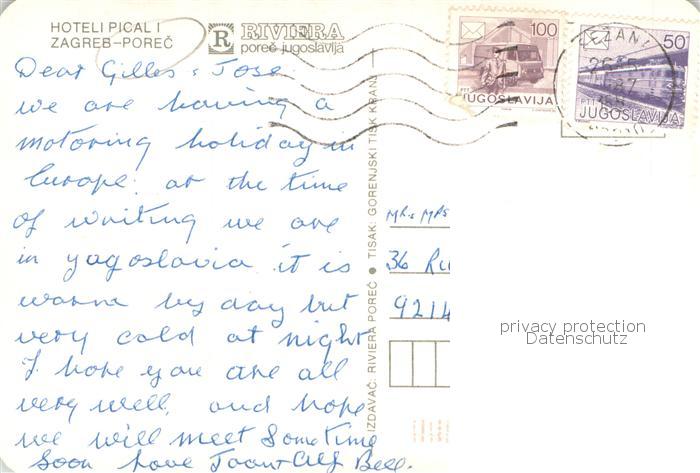 HOTELI PICAL I
ZAGREB–POREČ
R RIVIERA
poreč jugoslavija
Dear Gilles & Jose
we are having a
motoring holiday in
Europe. at the time
of writing we are
in yugoslavia it is
warm by day but
very cold at night
I hope you are all
very well, and hope
we will meet sometime
soon love Joan & Alf Bell.
IZDAVAČ: RIVIERA POREČ ● TISAK: GORENJSKI TISK KRANJ
100
PTT
JUGOSLAVIJA
50
PTT
JUGOSLAVIJA
MR & MRS
36 Ru
9214
privacy protection
Datenschutz